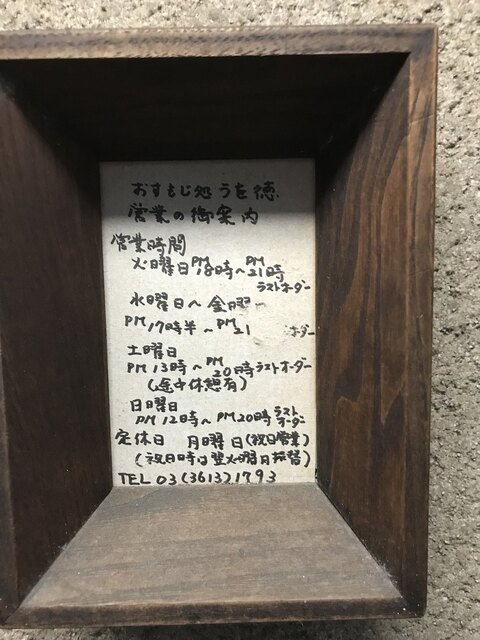 おすもじ処 うを徳
営業の御案内
営業時間
火曜日 PM18時〜PM21時
ラストオーダー
水曜日〜金曜
PM17時半〜PM21 オーダー
土曜日
PM13時〜PM20時ラストオーダー
(途中休憩有)
日曜日
PM12時〜PM20時ラストオーダー
定休日 月曜日(祝日営業)
(祝日時は翌火曜日振替)
TEL 03(3613)1793